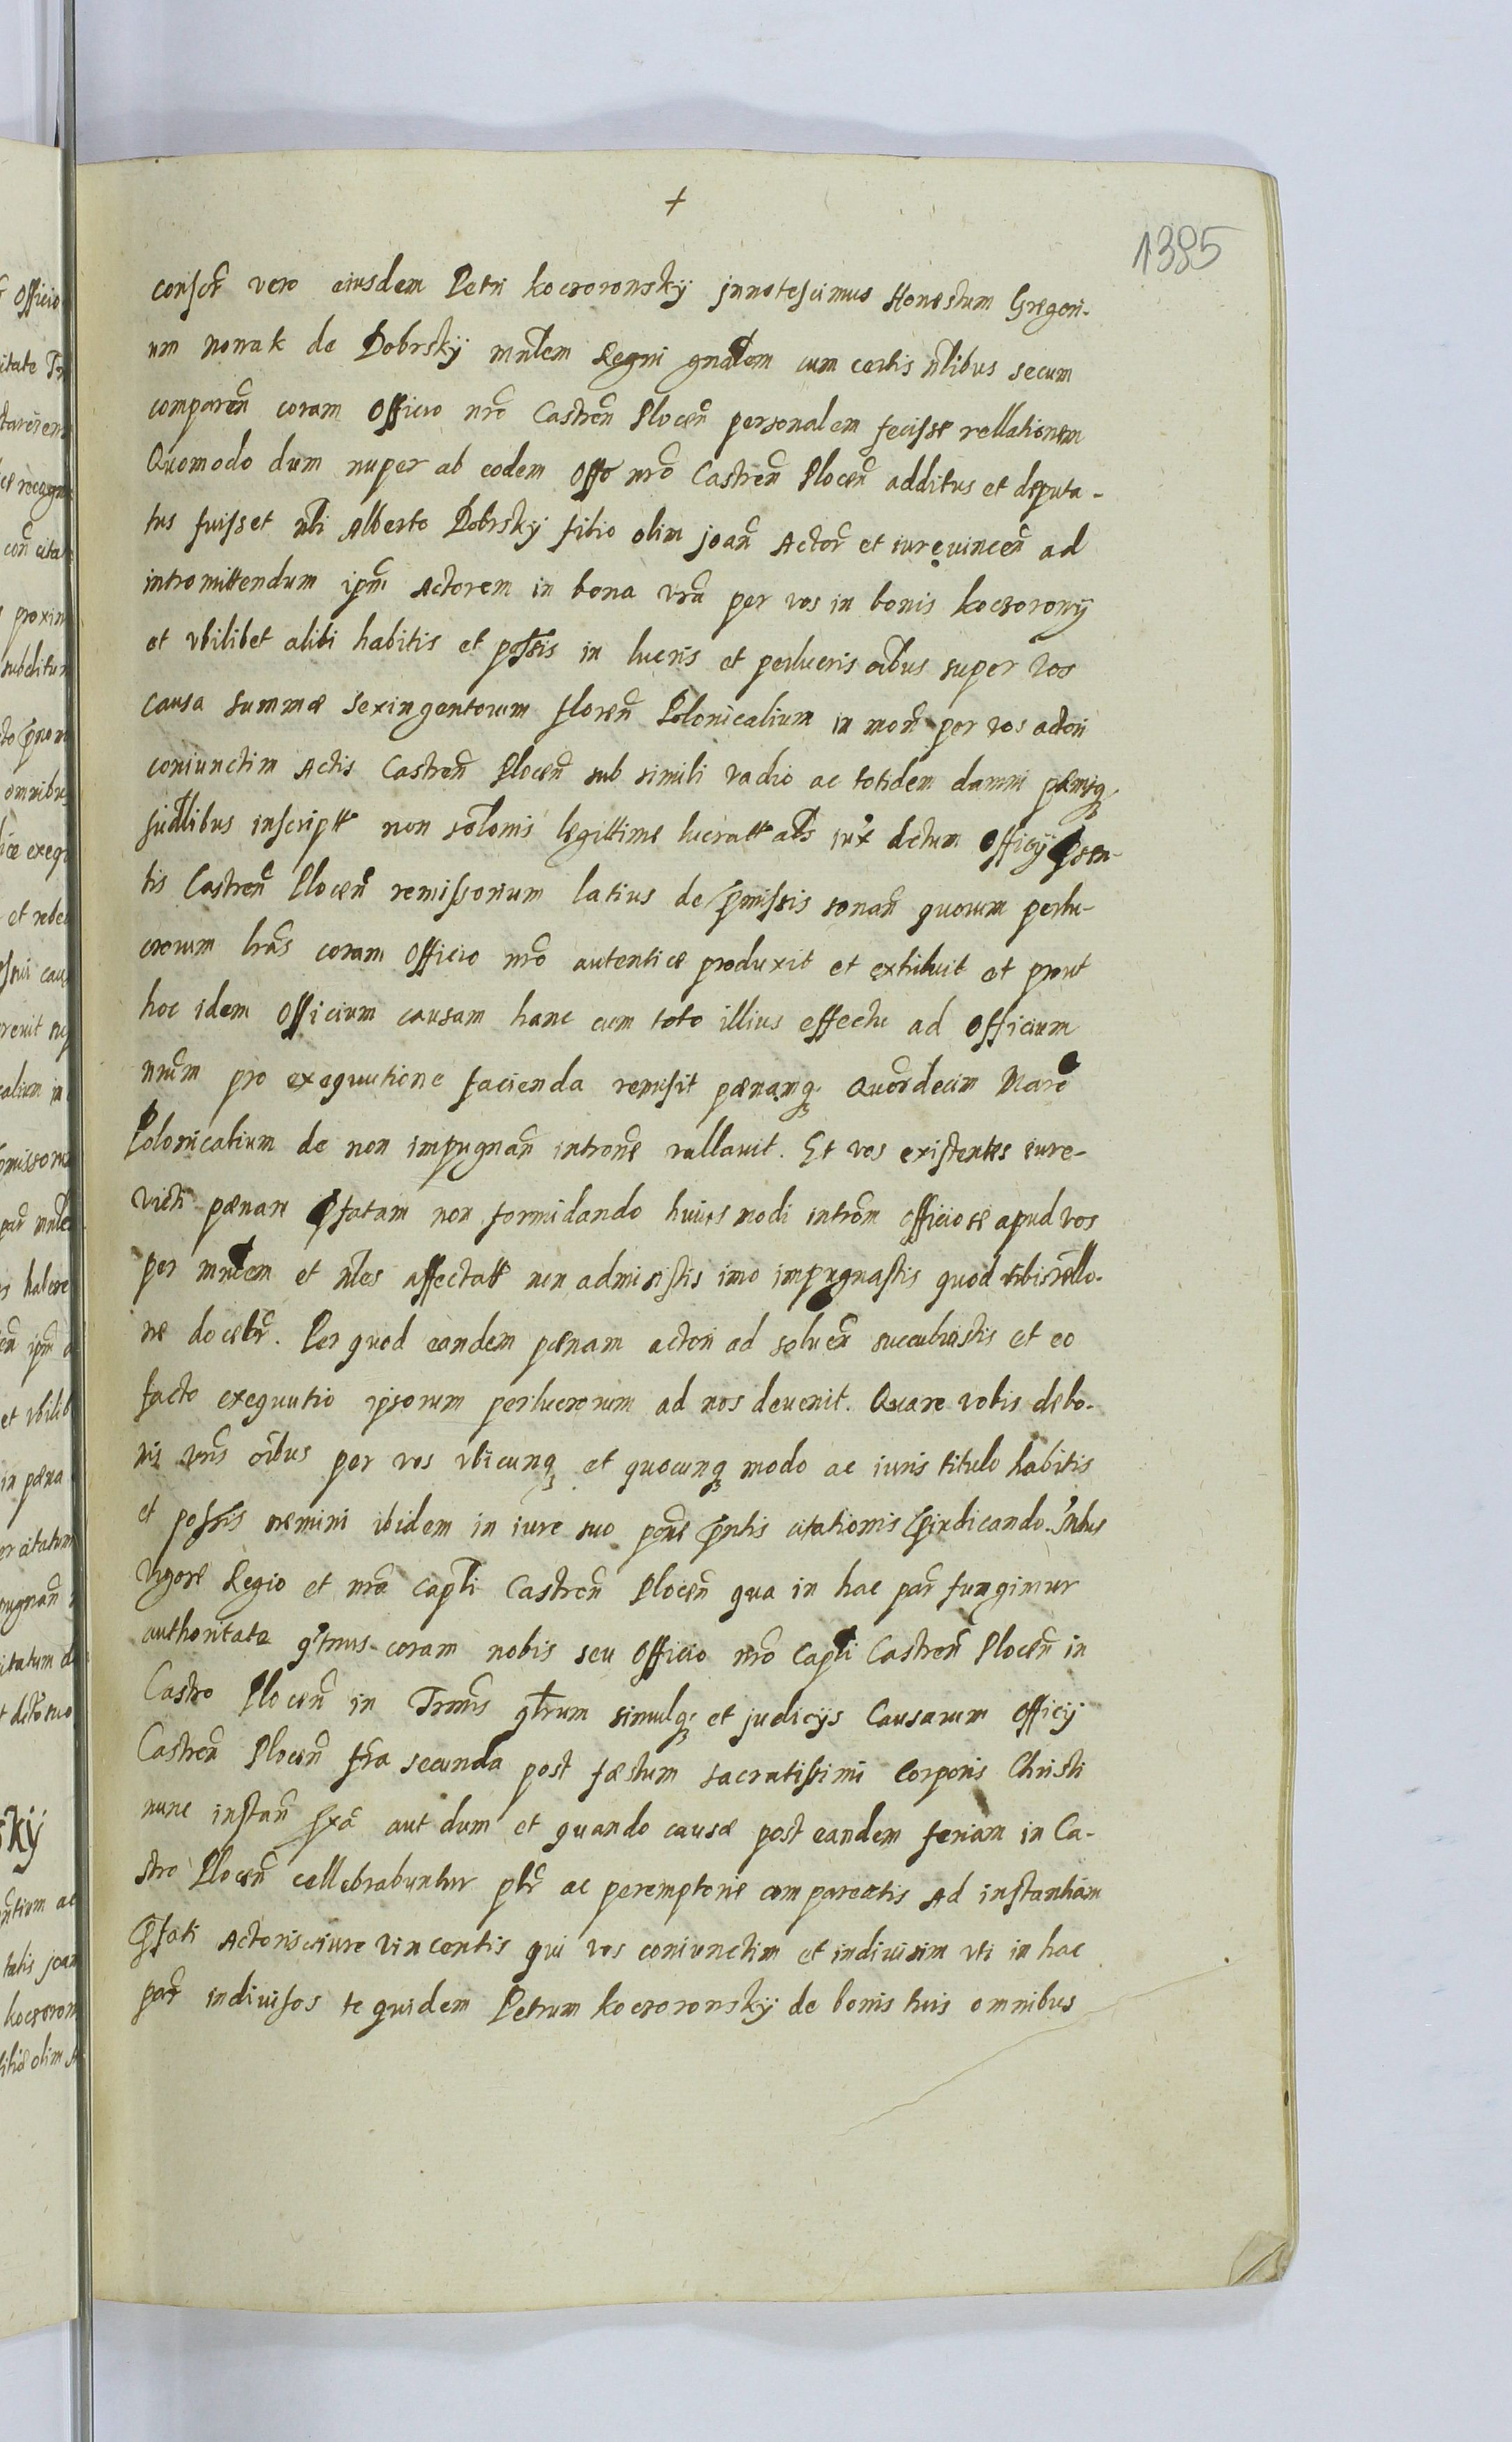 +
1385
consor̃ vero eiusdem Petri koczoronskÿ jnnotescimus Honestum Gregori-
um nowak de Dobrskÿ mñlem Regni gnãlem cum certis ñlibus secum
comparen̄ coram Officio nr̃o Castren̄ Plocen̄ personalem fecisse rellationem
Quomodo dum nuper ab eodem Offo nr̃o Castren̄ Plocen̄ additus et deputa-
tus fuisset nli Alberto Dobrskÿ filio olim joan̄ Actor̃ et iurevincen̄ ad
intromittendum ipm̄ Actorem in bona vr̃a per vos in bonis koczoronÿ
et vbilibet alibi habitis et possis in lucris et perlucris oĩbus super vos
causa summæ sexingentorum floren̄ Polonicalium in mon̄ per vos actori
coniunctim Actis Castren̄ Plocen̄ sub simili vadio ac totidem damni pœnisq;
fuĩtlibus inscriptt non sol̄onis legittime lucratt als iux̃ dctum Officÿ p̄sen-
tis Castren̄ Plocen̄ remissorium latius de p̄missis sonan̄ quorum perlu-
crorum lr̃as coram Officio nr̃o autentice produxit et exhibuit et prout
hoc idem Officium causam hanc cum toto illius effectu ad Officium
nr̃um pro exequutione facienda remisit pœnamq; Quordecim Marc̄
Polonicalium de non impugnan̄ introñe vallauit. Et vos existentes iure-
victi pœnam p̄fatam non formidando huiusmodi introm̄ officiose apud vos
per mñlem et ñles affectatt non admisistis imo impugnastis quod vobis rello-
ne docebr̃. Per quod eandem pœnam actori ad soluen̄ succubuistis et eo
facto exequutio ipsorum perlucrorum ad nos deuenit. Quare vobis de bo-
nis vr̃is oĩbus per vos vbicunq; et quocunq; modo ac iuris titulo habitis
et possis nemini ibidem in iure suo põne p̄ntis citationis p̄iudicando.
Vigore Regio et nr̃a capt̄li Castren̄ Plocen̄ qua in hac par̃ fungimur
authoritate coram nobis seu Officio nr̃o Capt̄li Castren̄ Plocen̄ in
Castro Plocen̄ in Trm̄is qr̃lrum simulq; et judicÿs Causarum Officÿ
Castren̄ Plocen̄ fr̃ia secunda post fæstum sacratissimi Corporis Christi
nunc instan̄ aut dum et quando causæ post eandem feriam in Ca-
stro Plocen̄ cellebrabuntur pt̄r̃ ac peremptorie compareatis Ad instantiam
p̄fati Actoris et iure vincentis qui vos coniunctim et indiuisim vti in hac
par̃ indiuisos te quidem Petrum koczoronskÿ de bonis tuis omnibus